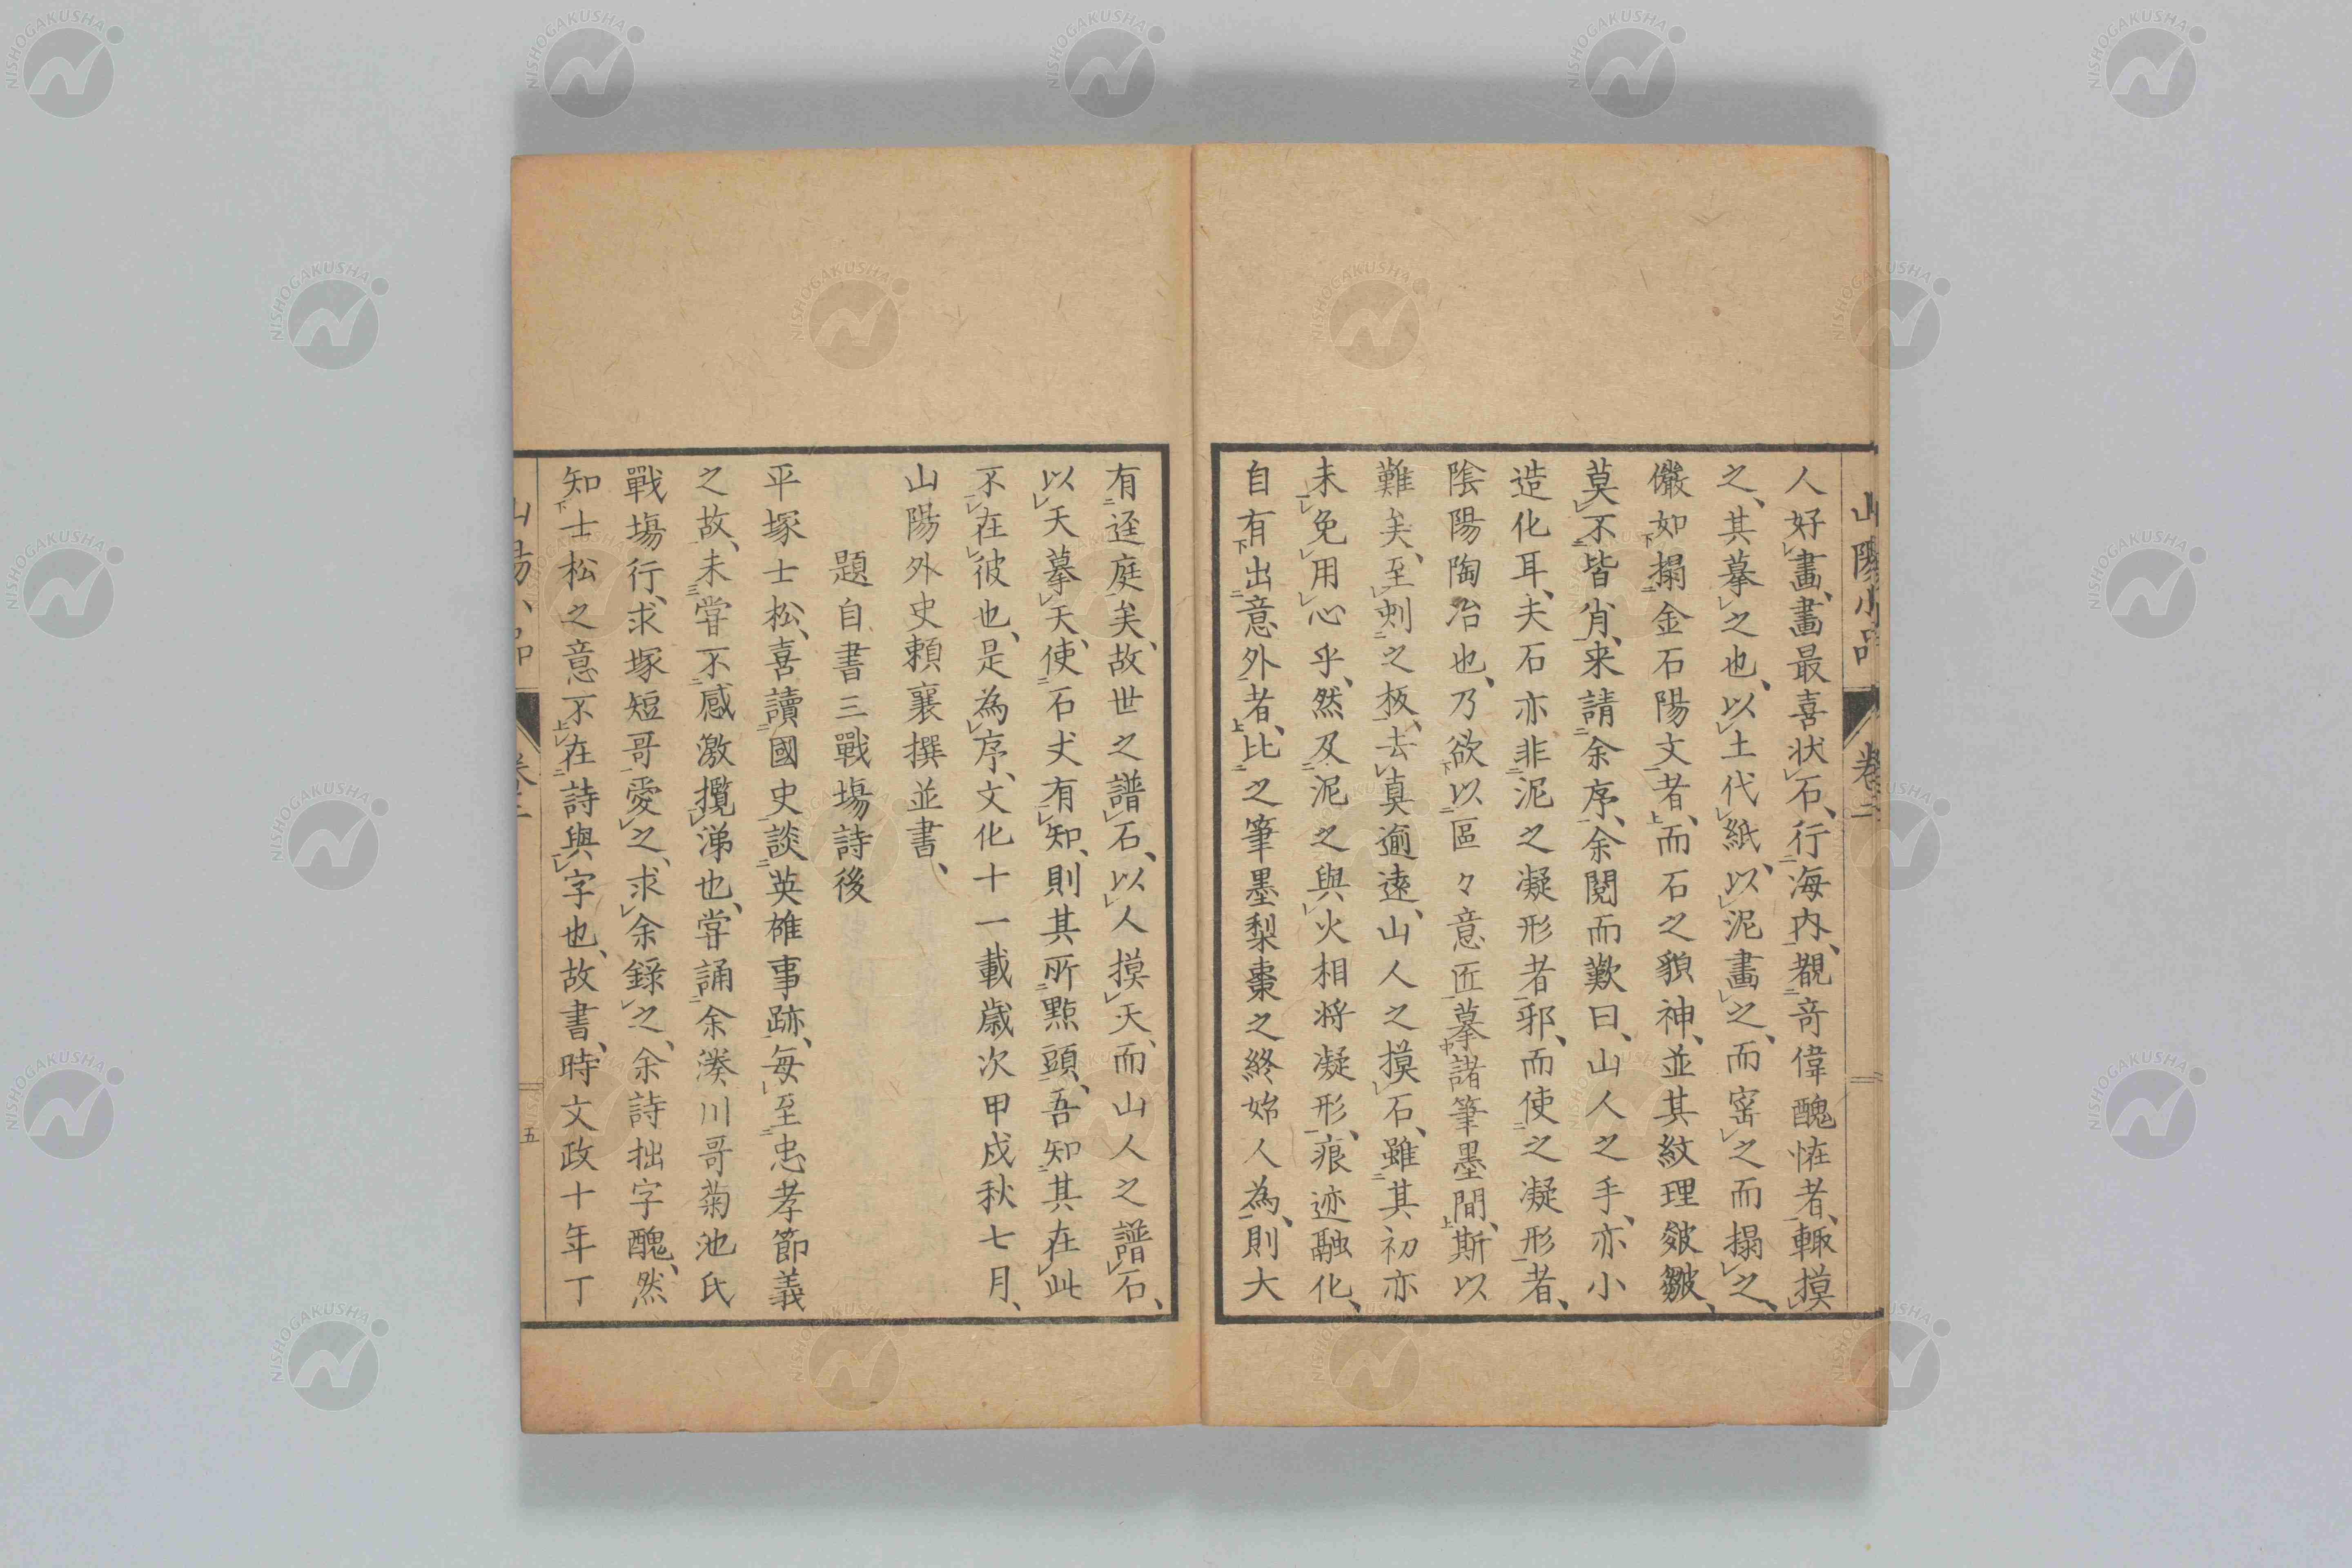 山陽小品
卷二
人好畫、畫最喜状石、行海内、覩竒偉醜恠者、輙摸
之、其摹之也、以土代紙、以泥畫之、而窰之而搨之、
儼如搨金石陽文者、而石之貌神、並其紋理皴皺、
莫不皆肖、来請余序、余閲而歎曰、山人之手、亦小
造化耳、夫石亦非泥之凝形者邪、而使之凝形者、
陰陽陶冶也、乃欲以區々意匠摹諸筆墨間、斯以
難矣、至刺之板、去真逾遠、山人之摸石、雖其初亦
未免用心乎、然及泥之與火相将凝形、痕迹融化、
自有出意外者、比之筆墨梨棗之終始人為、則大
有逕庭矣、故世之譜石、以人摸天、而山人之譜石、
以天摹天、使石丈有知、則其所㸃頭、吾知其在此
不在彼也、是為序、文化十一載歳次甲戌秋七月、
山陽外史頼襄撰並書、
題自書三戰塲詩後
平塚士松、喜讀國史談英雄事跡、每至忠孝節義
之故、未甞不感激攬涕也、甞誦余湊川哥菊池氏
戰塲行、求塚短哥愛之、求余錄之、余詩拙字醜、然
知士松之意不在詩與字也、故書、時文政十年丁
五